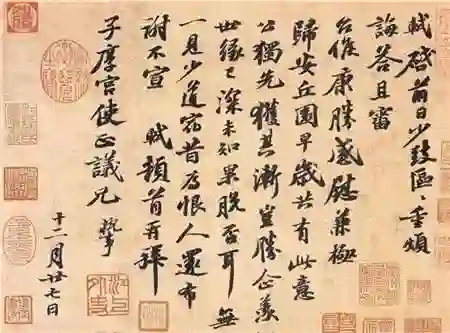 軾啓前日少致區區重煩
誨答且審
台候康勝感慰兼極
歸安丘園早歲共有此意
公獨先獲其漸豈勝企羨
世緣已深未知果脫否耳無
一見少道宿昔為恨人還布
謝不宣 軾頓首再拜
子厚宮使正議兄 執事
十二月廿七日